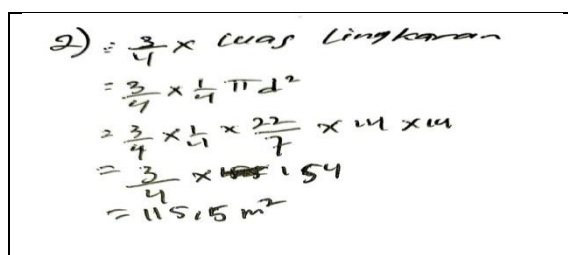 2) = 3/4 x Luas Lingkaran
= 3/4 x 1/4 π d²
= 3/4 x 1/4 x 22/7 x 14 x 14
= 3/4 x 154
= 115,5 m²